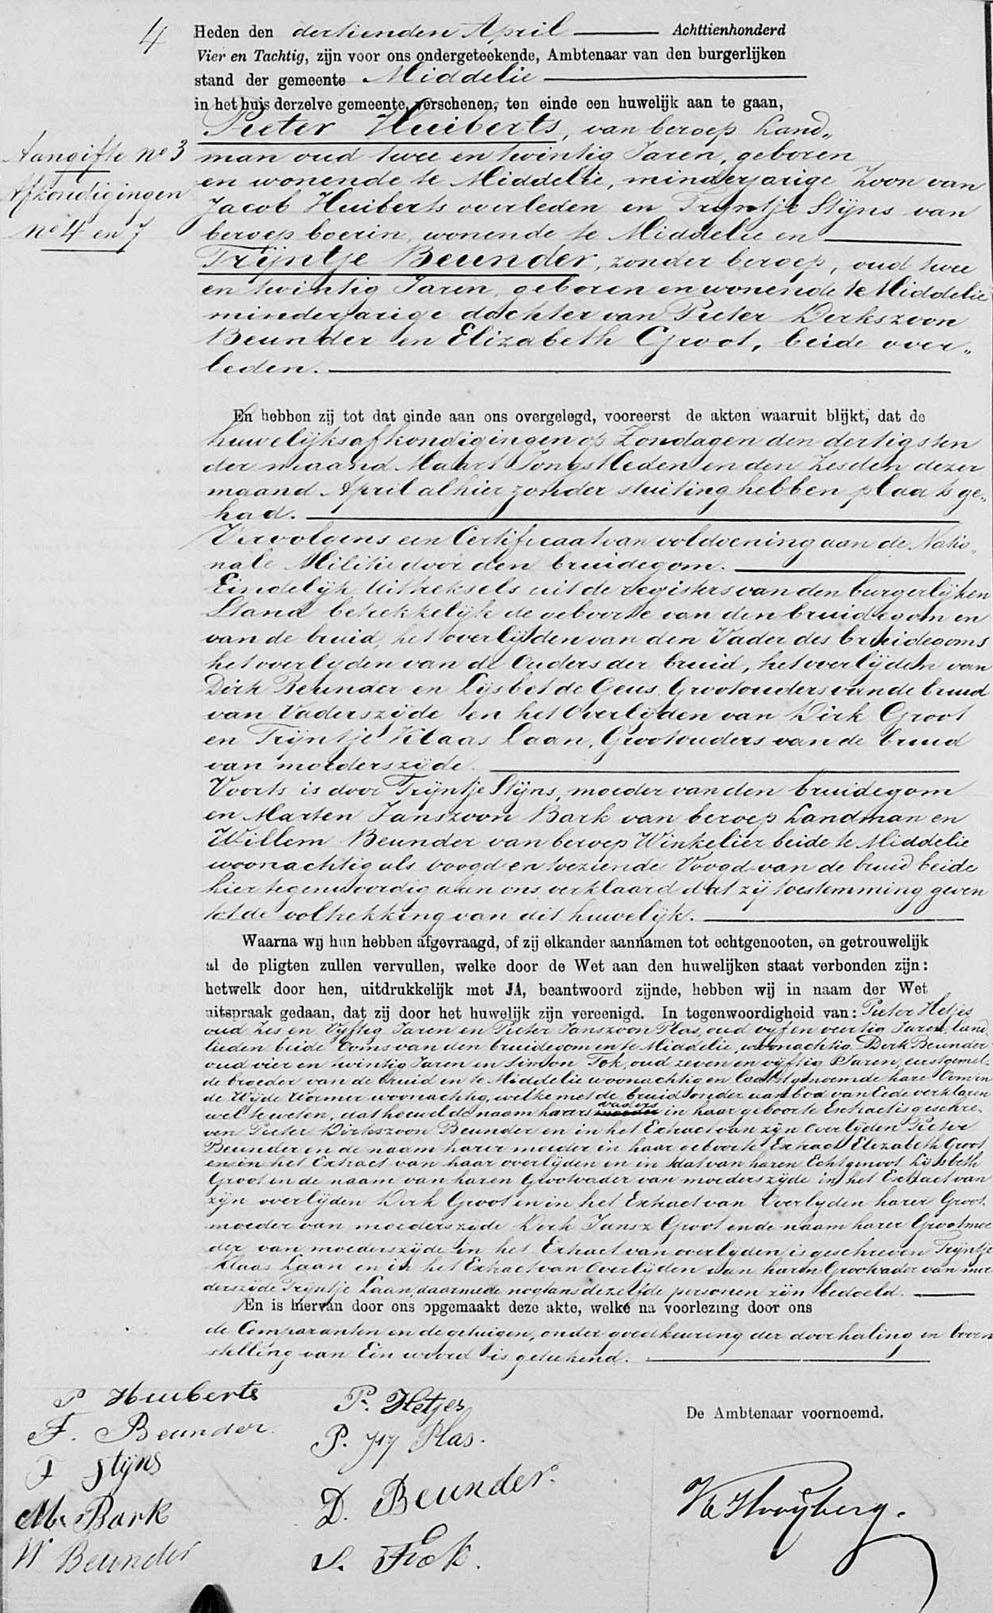 4
Heden den dertienden April Achttienhonderd
Vier en Tachtig, zijn voor ons ondergeteekende, Ambtenaar van den burgerlijken
stand der gemeente Middelie
in het huis derzelve gemeente, verschenen, ten einde een huwelijk aan te gaan,
Pieter Huiberts, van beroep Land„
Aangifte No 3
man oud twee en twintig Jaren, geboren
Afkondigingen
en wonende te Middelie, minderjarige Zoon van
Jacob Huiberts overleden en Trijntje Stijns van
No 4 en 7
beroep boerin, wonende te Middelie en
Trijntje Beunder, zonder beroep, oud twee
en twintig Jaren, geboren en wonende te Middelie
minderjarige dochter van Pieter Dirkszoon
Beunder en Elizabeth Groot, beide over„
leden.
En hebben zij tot dat einde aan ons overgelegd, vooreerst de akten waaruit blijkt, dat de
huwelijksafkondigingen op Zondagen den dertigsten
der maand Maart Jongstleden en den Zesden dezer
maand April alhier zonder stuiting hebben plaats ge„
had.
Vervolgens een Certificaat van voldoening aan de Natio„
nale Militie door den bruidegom.
Eindelijk Uittreksels uit de registers van den burgerlijken
Stand betrekkelijk de geboorte van den bruidegom en
van de bruid, het overlijden van den Vader des bruidegoms
het overlijden van de Ouders der bruid, het overlijden van
Dirk Beunder en Lijsbet de Geus, Grootouders van de bruid
van Vaderszijde en het Overlijden van Dirk Groot
en Trijntje Klaas Laan, Grootouders van de bruid
van moederszijde.
Voorts is door Trijntje Stijns, moeder van den bruidegom
en Marten Janszoon Bark van beroep Landman en
Willem Beunder van beroep Winkelier beide te Middelie
woonachtig als voogd en toeziende Voogd van de bruid beide
hier tegenwoordig aan ons verklaard dat zij toestemming geven
tot de voltrekking van dit huwelijk.
Waarna wij hun hebben afgevraagd, of zij elkander aannamen tot echtgenooten, en getrouwelijk
al de pligten zullen vervullen, welke door de Wet aan den huwelijken staat verbonden zijn:
hetwelk door hen, uitdrukkelijk met JA, beantwoord zijnde, hebben wij in naam der Wet
uitspraak gedaan, dat zij door het huwelijk zijn vereenigd. In tegenwoordigheid van: Pieter Hetjes
oud Zes en Vijftig Jaren en Pieter Janszoon Plas, oud vijf en veertig Jaren, land„
lieden beide Ooms van den bruidegom en te Middelie, woonachtig Dirk Beunder
oud vier en twintig Jaren en Simon Fok, oud zeven en vijftig Jaren, eerstgemel„
de broeder van de bruid en te Middelie woonachtig en laatstgenoemde hare Oom in
de Wijde Wormer woonachtig, welke met de bruid onder aanbod van Eede verklaren
wel te weten, dat hoewel de naam harer vaders in haar geboorte Extract is geschre„
ven Pieter Dirkszoon Beunder en in het Extract van zijn Overlijden Pieter
Beunder en de naam harer moeder in haar geboorte Extract Elizabeth Groot
en in het Extract van haar overlijden en in dat van haren Echtgenoot Lijsbeth
Groot en de naam van haren Grootvader van moederszijde in het Extract van
zijn overlijden Dirk Groot en in het Extract van Overlijden harer Groot„
moeder van moederszijde Dirk Jansz Groot en de naam harer Grootmoe„
der van moederszijde in het Extract van overlijden is geschreven Trijntje
Klaas Laan en in het Extract van Overlijden van haren Grootvader van moe„
derszijde Trijntje Laan, daarmede nogtans dezelfde personen zijn bedoeld.
En is hiervan door ons opgemaakt deze akte, welke na voorlezing door ons
de Comparanten en de getuigen, onder goedkeuring der doorhaling en boven„
stelling van Een woord is geteekend.
P Huiberts
P. Hetjes
De Ambtenaar voornoemd.
T. Beunder.
P. Jz Plas.
T Stijns
D. Beunder.
M. Bark
W Beunder
S. Fok.
K Hooijberg.